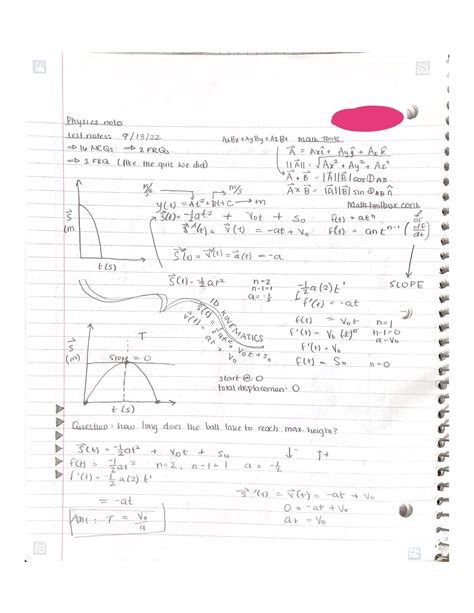 Physics notes
test notes: 9/13/22
→ 10 MCQs → 2 FRQs
→ 1 FRQ (like the quiz we did)
AxBx + AyBy + AzBz Math Tools
A⃗ = Axî + Ayĵ + Azk̂
||A⃗|| = √Ax² + Ay² + Az²
A⃗ · B⃗ = |A⃗||B⃗| cosθAB
A⃗ x B⃗ = |A⃗||B⃗| sinθAB n̂
Math toolbox cont.
m/s² m/s
y(t) = At² + Bt + C → m
s⃗(t) = -½at² + v₀t + s₀
s⃗'(t) = v⃗(t) = -at + v₀
s⃗''(t) = v⃗'(t) = a⃗(t) = -a
f(t) = atⁿ
f'(t) = antⁿ⁻¹ (df/dt)
or
SLOPE
s⃗
(m)
t(s)
s⃗(t) = -½at²
n=2
n-1=1
a=-½
-½a(2)t'
f'(t) = -at
1D KINEMATICS
f(t) = v₀t n=1
f'(t) = v₀(t)⁰ n-1=0
a=v₀
f'(t) = v₀
f(t) = s₀ n=0
s⃗
(m)
T
slope = 0
t(s)
start @ 0
total displacement: 0
Question: how long does the ball take to reach max. height?
s⃗(t) = -½at² + v₀t + s₀
↓- ↑+
f(t) = -½at² n=2, n-1=1 a=-½
f'(t) = -½a(2)t'
= -at
s⃗'(t) = v⃗(t) = -at + v₀
0 = -at + v₀
at = v₀
Ans: T = v₀/a